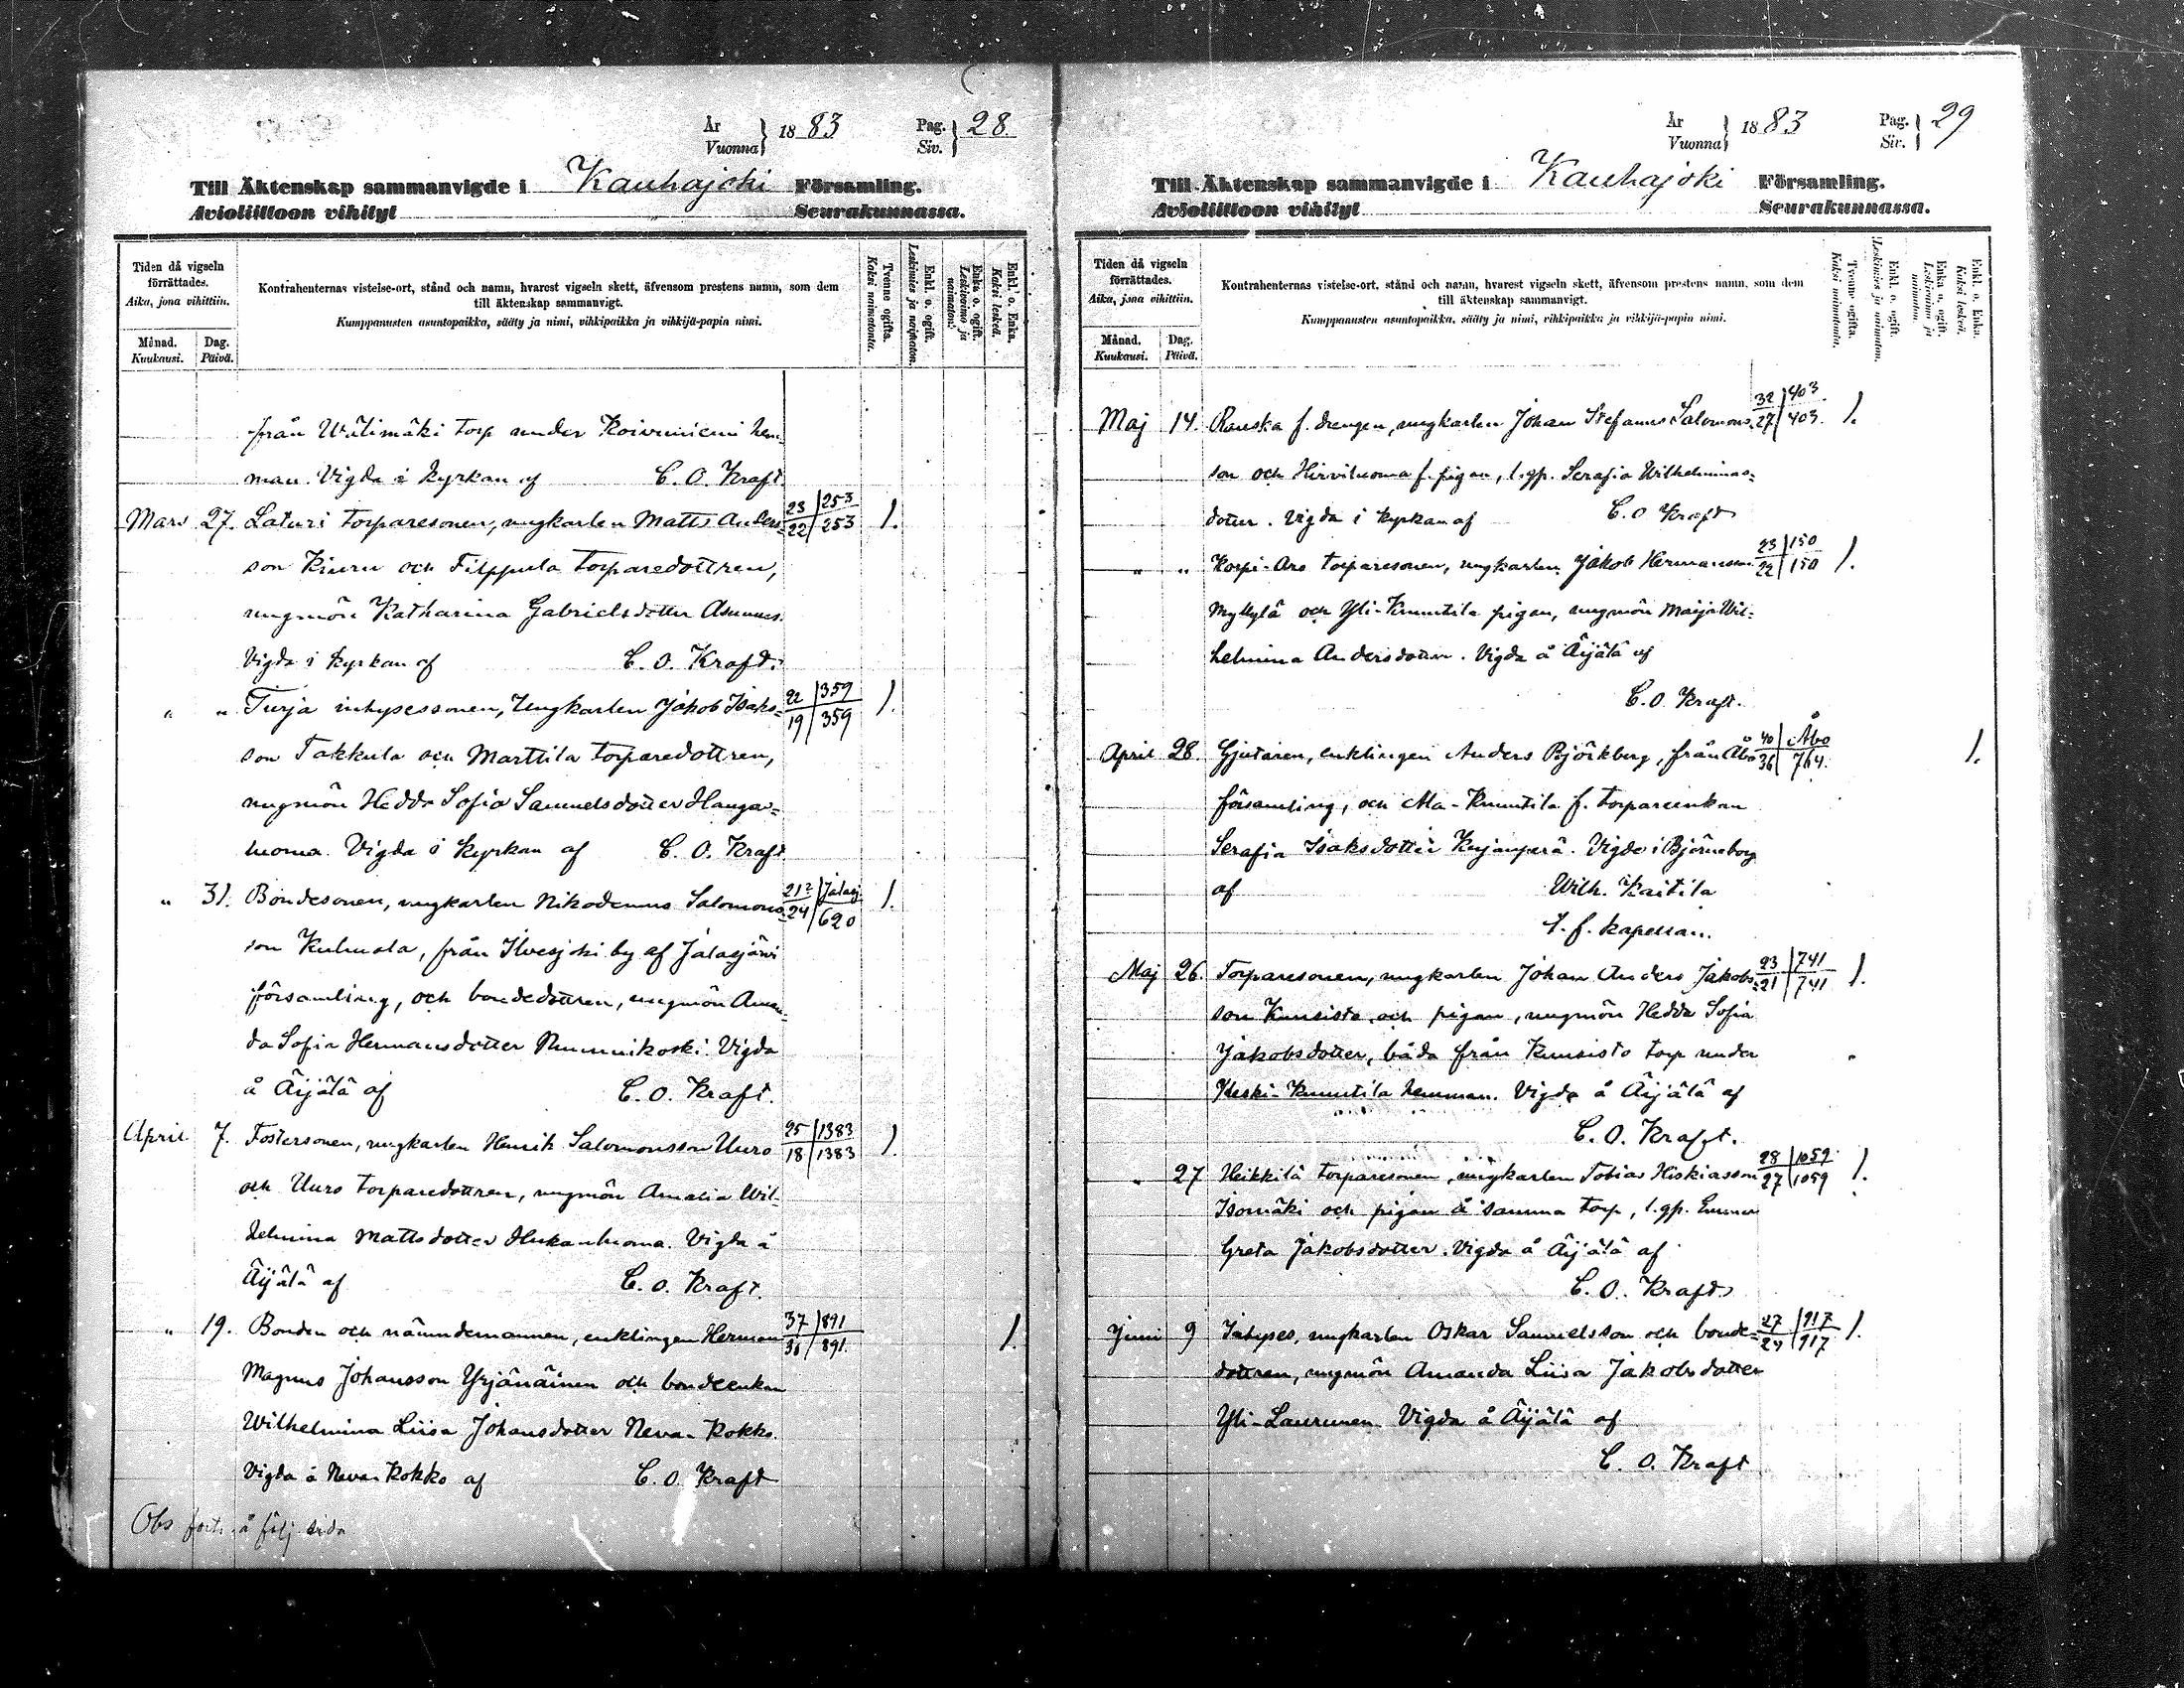 År
Vuonna } 1883 Pag.
Siv. } 28
Till Äktenskap sammanvigde i Kauhajoki Församling.
Avioliittoon vihityt Seurakunnassa.
Tiden då vigseln
förrättades.
Aika, jona vihittiin.
Månad.
Kuukausi.
Dag.
Päivä.
Kontrahenternas vistelse-ort, stånd och namn, hvarest vigseln skett, äfvensom prestens namn, som dem
till äktenskap sammanvigt.
Kumppanusten asuntopaikka, sääty ja nimi, vihkipaikka ja vihkijä-papin nimi.
Tvenne ogifta.
Kaksi naimatonta.
Enkl. o. ogift.
Leskimies ja naimaton.
Enka o. ogift.
Leskivaimo ja
naimaton.
Enkl. o. Enka.
Kaksi leskeä.
från Wälimäki torp under Koivuniemi hem-
man. Vigda i kyrkan af C. O. Kraft
Mars 27. Laturi torparesonen, ungkarlen Matts Anders= 23 | 253 1.
22 | 253
son Kiuru och Filppula torparedottren,
ungmön Katharina Gabrielsdotter Asunmes.
Vigda i kyrkan af C. O. Kraft.
" " Turja inhysessonen, Ungkarlen Jakob Isaks= 22 | 359 1.
19 | 359
son Takkula och Marttila torparedottren,
ungmön Hedda Sofia Samuelsdotter Hanga=
luoma. Vigda i kyrkan af C. O. Kraft
" 31. Bondesonen, ungkarlen Nikodemus Salomons= 21? | Jalasj. 1.
24 | 620
son Kulmala, från Ilvesjoki by af Jalasjärvi
församling, och bondedottren, ungmön Aman-
da Sofia Hermansdotter Nummikoski. Vigda
å Äijälä af C. O. Kraft.
April 7. Fostersonen, ungkarlen Henrik Salomonsson Uuro 25 | 1383 1.
18 | 1383
och Uuro torparedottren, ungmön Amalia Wil-
helmina Mattsdotter Hukanluoma. Vigda å
Äijälä af C. O. Kraft.
" 19. Bonden och nämndemannen, enklingen Herman 37 | 891 1.
36 | 891.
Magnus Johansson Yrjänäinen och bondeenkan
Wilhelmina Liisa Johansdotter Neva-Kokko.
Vigda å Neva-Kokko af C. O. Kraft
Obs forts. å följ sida
År
Vuonna } 1883 Pag.
Siv. } 29
Till Äktenskap sammanvigde i Kauhajoki Församling.
Avioliittoon vihityt Seurakunnassa.
Tiden då vigseln
förrättades.
Aika, jona vihittiin.
Månad.
Kuukausi.
Dag.
Päivä.
Kontrahenternas vistelse-ort, stånd och namn, hvarest vigseln skett, äfvensom prestens namn, som dem
till äktenskap sammanvigt.
Kumppanusten asuntopaikka, sääty ja nimi, vihkipaikka ja vihkijä-papin nimi.
Tvenne ogifta.
Kaksi naimatonta.
Enkl. o. ogift.
Leskimies ja naimaton.
Enka o. ogift.
Leskivaimo ja
naimaton.
Enkl. o. Enka.
Kaksi leskeä.
Maj 14. Rauska f. drengen, ungkarlen Johan Stefanus Salomons- 32 | 403. 1.
27 | 403.
son och Hirviluoma f. pigan, l. qp. Serafia Wilhelminas=
dotter. Vigda i kyrkan af C. O Kraft
" " Korpi-Aro torparesonen, ungkarlen Jakob Hermansson 23 | 150 1.
22 | 150
Myllylä och Yli-Knuutila pigan, ungmön Maija Wil-
helmina Andersdotter. Vigda å Äijälä af
C. O. Kraft.
April 28. Gjutaren, enklingen Anders Björkberg, från Åbo 40 | Åbo 1.
36 | 764.
församling, och Ala-Knuutila f. torpareenkan
Serafia Isaksdotter Kujanperä. Vigda i Björneborg
af Wilh. Kaitila
t. f. kapellan.
Maj 26. Torparesonen, ungkarlen Johan Anders Jakobs= 23 | 741 1.
21 | 741
son Kuusisto och pigan, ungmön Hedda Sofia
Jakobsdotter, båda från Kuusisto torp under
Keski-Knuutila hemman. Vigda å Äijälä af
C. O. Kraft.
" 27 Heikkilä torparesonen, ungkarlen Tobias Hiskiasson 28 | 1059. 1.
27 | 1059
Isomäki och pigan å samma torp, l. qp. Emma
Greta Jakobsdotter. Vigda å Äijälä af
C. O. Kraft
Juni 9 Inhyses, ungkarlen Oskar Samuelsson och bonde= 27 | 917 1.
24 | 917
dottren, ungmön Amanda Liisa Jakobsdotter
Yli-Laurunen. Vigda å Äijälä af
C. O. Kraft